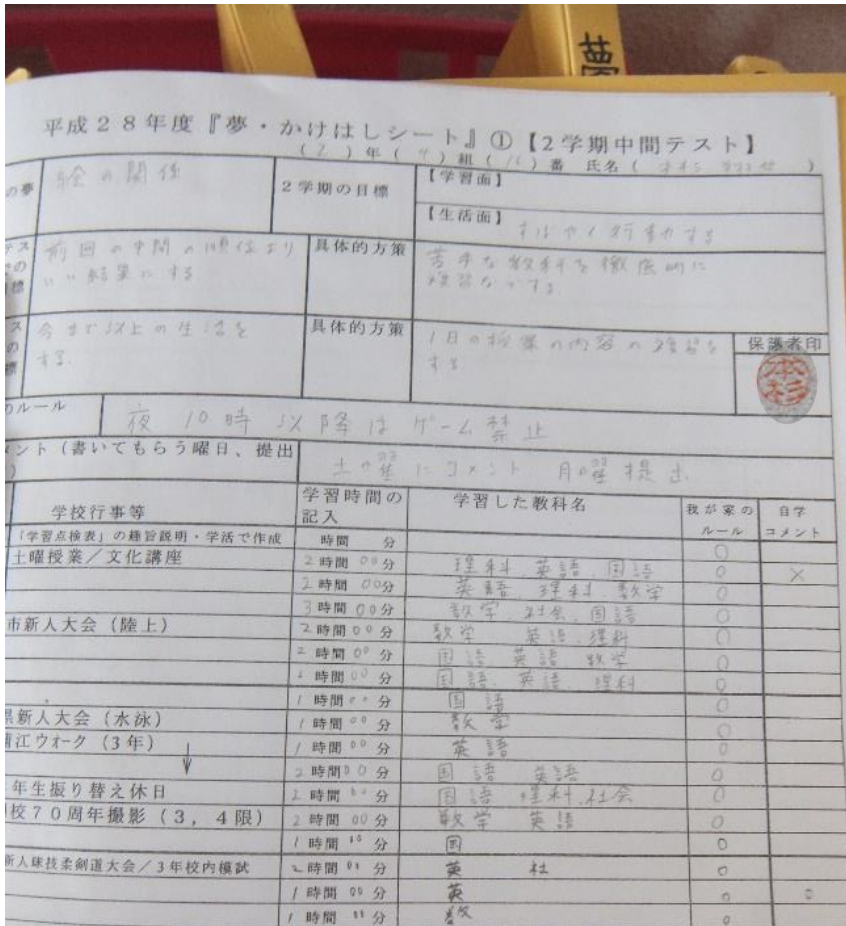 夢
平成28年度『夢・かけはしシート』①【2学期中間テスト】
(2)年(4)組(16)番 氏名( )
の夢 絵の関係 2学期の目標 【学習面】
【生活面】 すばやく行動する
テス 前回の中間の順位より 具体的方策 苦手な教科を徹底的に
での いい結果にする 復習などする
目標
ス 今まで以上の生活を 具体的方策 1日の授業の内容の復習を 保護者印
の する する 本杉
標
のルール 夜10時以降はゲーム禁止
メント(書いてもらう曜日、提出 土曜にコメント 月曜提出
)
学校行事等 学習時間の記入 学習した教科名 我が家のルール 自学コメント
「学習点検表」の趣旨説明・学活で作成 時間 分 ○
土曜授業/文化講座 2時間00分 理科 英語 国語 ○ ×
2時間00分 英語 理科 数学 ○
3時間00分 数学 社会 国語 ○
市新人大会(陸上) 2時間00分 数学 英語 理科 ○
2時間00分 国語 英語 数学 ○
時間00分 国語 英語 理科 ○
1時間00分 国語 ○
県新人大会(水泳) 1時間00分 数学 ○
江ウオーク(3年) 1時間00分 英語 ○
2時間00分 国語 英語 ○
年生振り替え休日 時間 分 国語 理科 社会 ○
校70周年撮影(3,4限) 2時間00分 数学 英語 ○
1時間 分 国 ○
新人球技柔剣道大会/3年校内模試 2時間 分 英 社 ○
1時間00分 英 ○ ○
1時間 分 数 ○